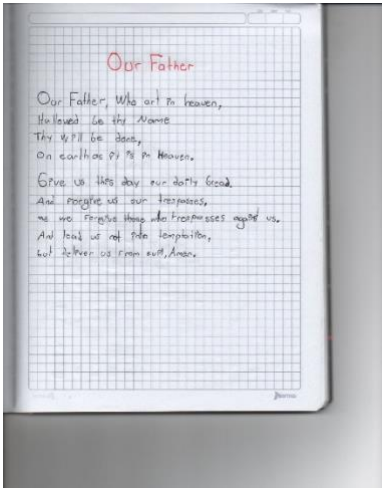 Our Father
Our Father, Who art in heaven,
Hallowed be thy Name
Thy Will be done,
On earth as it is in Heaven.
Give us this day our daily bread.
And Forgive us our trespasses,
as we Forgive those who trespasses against us.
And lead us not into temptation,
but deliver us From evil, Amen.
Norma